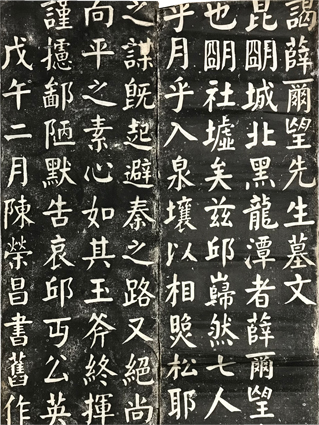 謁薛爾望先生墓文
昆朙城北黑龍潭者薛爾望
也朙社墟矣兹邱巋然七人
乎月乎入泉壤以相煚松耶
之謀既起避秦之路又絕尚
向平之素心如其玉斧終揮
謹攄鄙陋默告哀邱丐公英
戊午二月陳榮昌書舊作